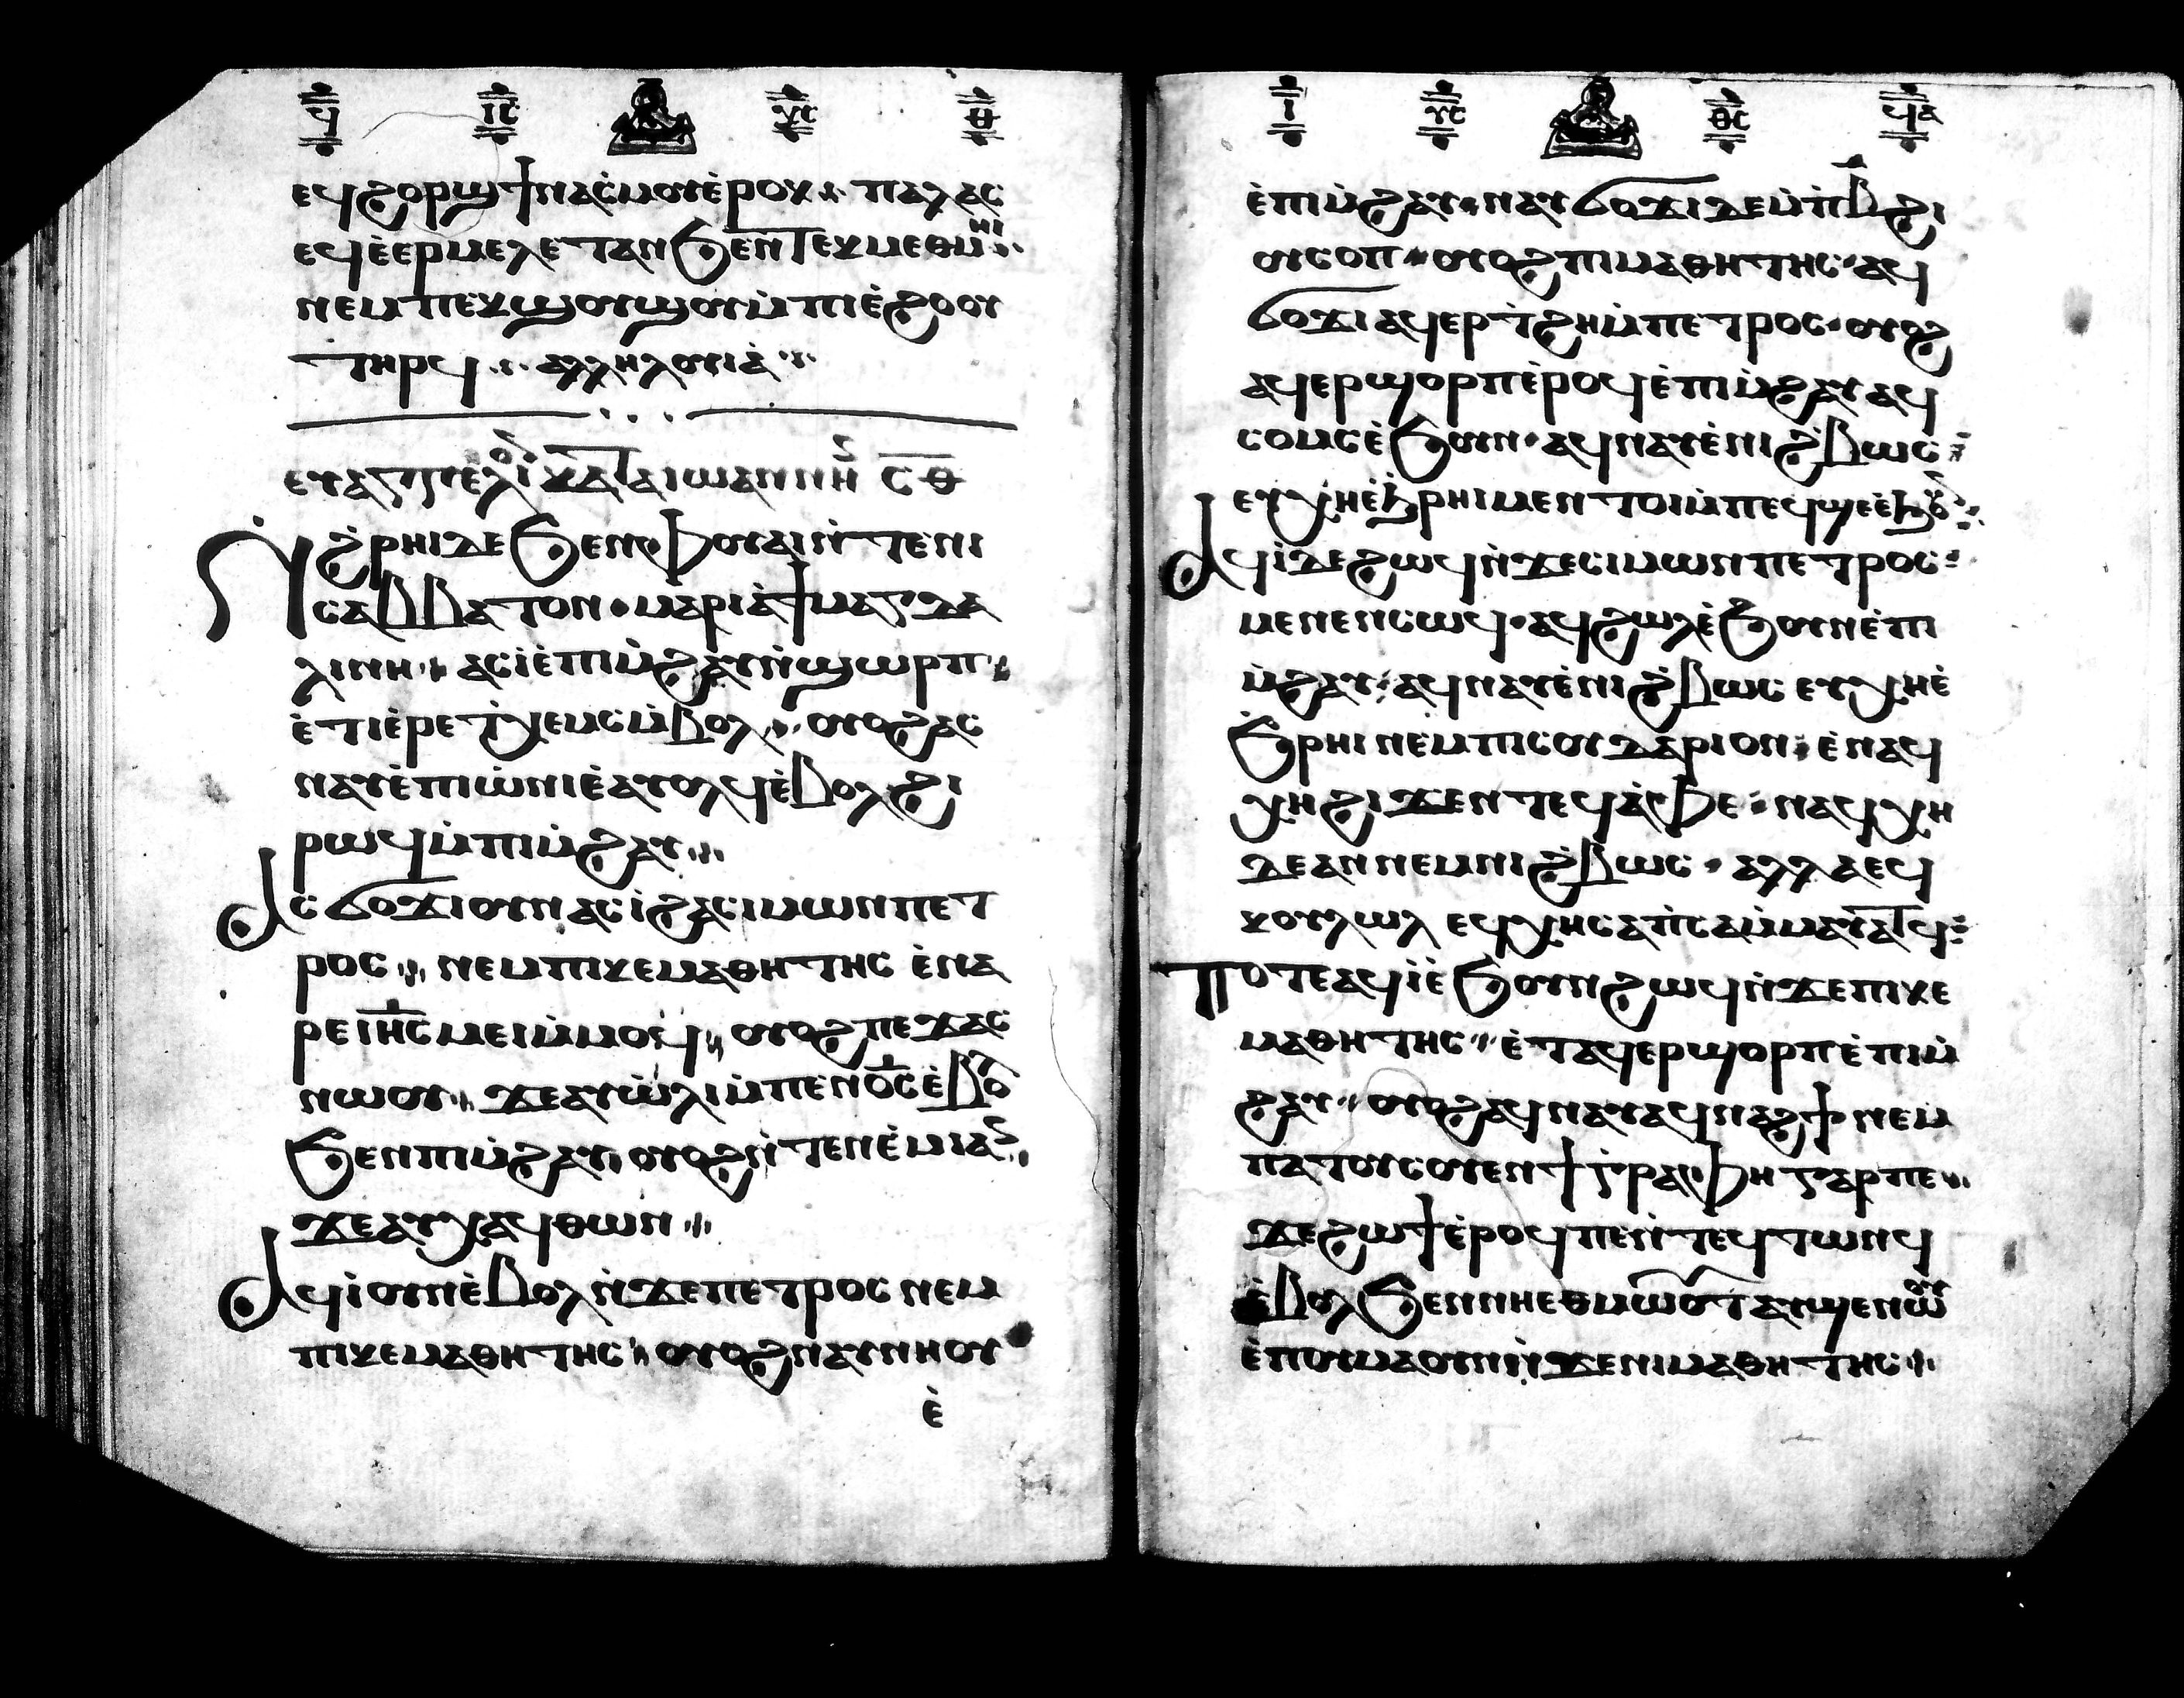 ϥ ⲓ̅ⲥ̅ ⲭ̅ⲥ̅ ⲑ
ⲉϥϩⲟⲣϣ ϯⲛⲁⲥ̀ⲙⲟⲩ ⲉ̀ⲣⲟⲕ ⁘ ⲡⲁⲗⲁⲥ
ⲉϥⲉ̀ⲉⲣⲙⲉⲗⲉⲧⲁⲛ ϧⲉⲛ ⲧⲉⲕⲙⲉⲑⲙⲏⲓ ⁘
ⲛⲉⲙ ⲡⲉⲕϣⲟⲩϣⲟⲩ ⲙ̀ⲡⲓⲉ̀ϩⲟⲟⲩ
ⲧⲏⲣϥ ⁘ ⲁⲗⲗⲏⲗⲟⲩⲓⲁ̀ ⁘
ⲉⲩⲁⲅⲅⲉⲗⲓⲟⲛ ⲕⲁⲧⲁ ⲓⲱⲁⲛⲛⲏⲛ ⲥ̅ⲑ̅
Ⲛ̀ϩⲣⲏⲓ ⲇⲉ ϧⲉⲛ ⲫⲟⲩⲁⲓ ⲛ̀ⲧⲉ ⲛⲓ
ⲥⲁⲃⲃⲁⲧⲟⲛ · ⲙⲁⲣⲓⲁ̀ ϯⲙⲁⲅⲇⲁ
ⲗⲓⲛⲏ · ⲁⲥⲓ̀ ⲉ̀ⲡⲓⲙ̀ϩⲁⲩ ⲛ̀ϣⲱⲣⲡ ·
ⲉ̀ⲧⲓ ⲉ̀ⲣⲉ ⲧ̀ⲭⲉⲙⲥ ⲙ̀ⲃⲟⲗ · ⲟⲩⲟϩ ⲁⲥ
ⲛⲁⲩ ⲉ̀ⲡⲓⲱ̀ⲛⲓ ⲉ̀ⲁⲩⲟⲗϥ ⲉ̀ⲃⲟⲗ ϩⲓ
ⲣⲱϥ ⲙ̀ⲡⲓⲙ̀ϩⲁⲩ ⁘
Ⲁⲥϭⲟϫⲓ ⲟⲩⲛ ⲁⲥⲓ̀ ϩⲁ ⲥⲓⲙⲱⲛ ⲡⲉⲧ
ⲣⲟⲥ · ⲛⲉⲙ ⲡⲓⲕⲉⲙⲁⲑⲏⲧⲏⲥ ⲉ̀ⲛⲁ
ⲣⲉ ⲓⲏ̅ⲥ̅ ⲙⲉⲓ ⲙ̀ⲙⲟϥ · ⲟⲩⲟϩ ⲡⲉϫⲁⲥ
ⲛⲱⲟⲩ · ϫⲉ ⲁⲩⲱ̀ⲗⲓ ⲙ̀ⲡⲉⲛⲟ̅ⲥ̅ ⲉ̀ⲃⲟⲗ
ϧⲉⲛ ⲡⲓⲙ̀ϩⲁⲩ ⲟⲩⲟϩ ⲛ̀ⲧⲉⲛⲉ̀ⲙⲓ ⲁⲛ
ϫⲉ ⲁⲩⲭⲁϥ ⲑⲱⲛ ⁘
Ⲁϥⲓ̀ ⲟⲩⲛ ⲉ̀ⲃⲟⲗ ⲛ̀ϫⲉ ⲡⲉⲧⲣⲟⲥ ⲛⲉⲙ
ⲡⲓⲕⲉⲙⲁⲑⲏⲧⲏⲥ · ⲟⲩⲟϩ ⲛⲁⲩⲛⲏⲟⲩ
ⲉ̀
ⲓ ⲩ̅ⲥ̅ ⲑ̅ⲥ̅ ϥⲁ
ⲉ̀ⲡⲓⲙ̀ϩⲁⲩ · ⲛⲁⲩϭⲟϫⲓ ⲇⲉ ⲙ̀ⲡⲃ̅ ϩⲓ
ⲟⲩⲥⲟⲡ · ⲟⲩⲟϩ ⲡⲓⲙⲁⲑⲏⲧⲏⲥ · ⲁϥ
ϭⲟϫⲓ ⲁϥⲉⲣⲧ̀ϩⲏ ⲙ̀ⲡⲉⲧⲣⲟⲥ · ⲟⲩⲟϩ
ⲁϥⲉⲣϣⲟⲣⲡ ⲉ̀ⲣⲟϥ ⲉ̀ⲡⲓⲙ̀ϩⲁⲩ ⲁϥ
ⲥⲟⲙⲥ ⲉ̀ϧⲟⲩⲛ · ⲁϥⲛⲁⲩ ⲉ̀ⲛⲓϩ̀ⲃⲱⲥ
ⲉⲩⲭⲏ ⲉ̀ϧⲣⲏⲓ ⲙⲉⲛⲧⲟⲓ ⲙ̀ⲡⲉϥϣⲉ ⲉ̀ϧⲟⲩⲛ ⁘
Ⲁϥⲓ̀ ⲇⲉ ϩⲱϥ ⲛ̀ϫⲉ ⲥⲓⲙⲱⲛ ⲡⲉⲧⲣⲟⲥ ·
ⲙⲉⲛⲉⲛⲥⲱϥ · ⲁϥϩⲱⲗ ⲉ̀ϧⲟⲩⲛ ⲉ̀ⲡⲓ
ⲙ̀ϩⲁⲩ · ⲁϥⲛⲁⲩ ⲉ̀ⲛⲓϩ̀ⲃⲱⲥ ⲉⲩⲭⲏ ⲉ̀
ϧⲣⲏⲓ ⲛⲉⲙ ⲡⲓⲥⲟⲩⲇⲁⲣⲓⲟⲛ · ⲉ̀ⲛⲁϥ
ⲭⲏ ϩⲓϫⲉⲛ ⲧⲉϥⲁ̀ⲫⲉ · ⲛⲁϥⲭⲏ
ⲇⲉ ⲁⲛ ⲛⲉⲙ ⲛⲓϩ̀ⲃⲱⲥ · ⲁⲗⲗⲁ ⲉϥ
ⲕⲟⲩⲗⲱⲗ ⲉϥⲭⲏ ⲥⲁⲡ̀ⲥⲁ ⲙ̀ⲙⲁⲩⲁⲧϥ ⁘
Ⲡⲟⲧⲉ ⲁϥⲓ̀ ⲉ̀ϧⲟⲩⲛ ϩⲱϥ ⲛ̀ϫⲉ ⲡⲓⲕⲉ
ⲙⲁⲑⲏⲧⲏⲥ · ⲉ̀ⲧⲁϥⲉⲣϣⲟⲣⲡ ⲉ̀ⲡⲓⲙ̀
ϩⲁⲩ · ⲟⲩⲟϩ ⲁϥⲛⲁⲩ ⲁϥⲛⲁϩϯ · ⲛⲉⲙ
ⲡⲁⲧⲟⲩⲥⲟⲩⲉⲛ ϯⲅ̀ⲣⲁⲫⲏ ⲅⲁⲣ ⲡⲉ ·
ϫⲉ ϩⲱϯ ⲉ̀ⲣⲟϥ ⲡⲉ ⲛ̀ⲧⲉϥⲧⲱⲛϥ
ⲉ̀ⲃⲟⲗ ϧⲉⲛ ⲛⲏⲉⲑⲙⲱⲟⲩⲧ ⲁⲩϣⲉⲛⲱⲟⲩ
ⲉ̀ⲡⲟⲩⲙⲁ ⲟⲩⲛ ⲛ̀ϫⲉ ⲛⲓⲙⲁⲑⲏⲧⲏⲥ ⁘